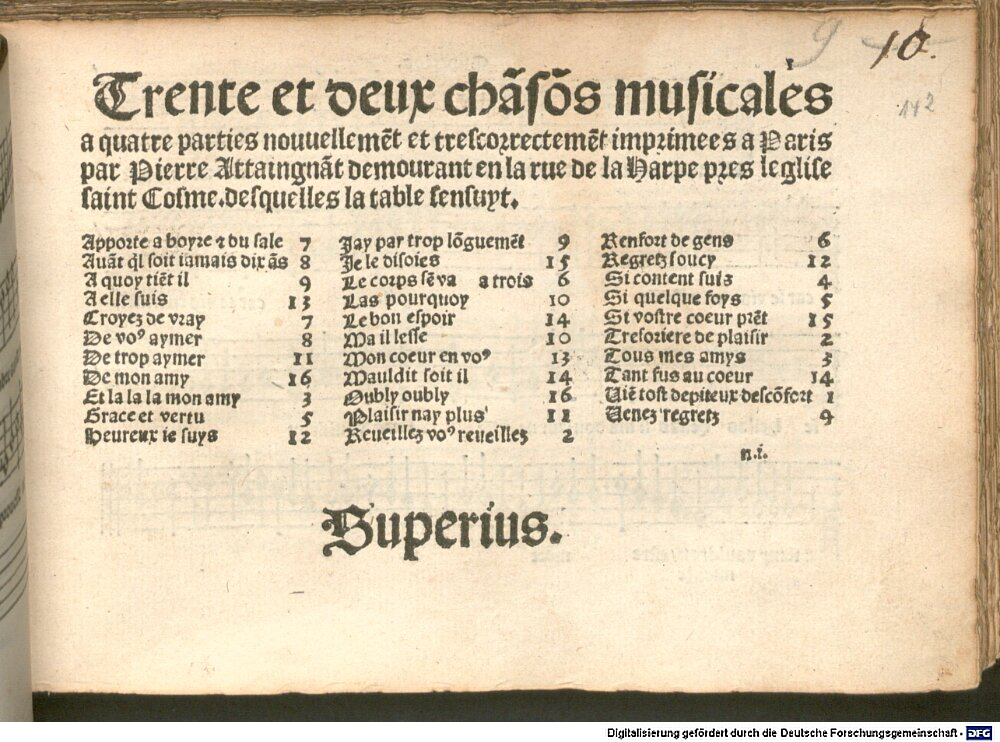 9 10.
112
Trente et deux chãsõs musicales
a quatre parties nouuellemẽt et trescorrectemẽt imprimees a Paris
par Pierre Attaingnãt demourant en la rue de la Harpe pres leglise
saint Cosme. desquelles la table sensuyt.
Apporte a boyre ⁊ du sale 7
Auãt q̃l soit iamais dix ãs 8
A quoy tiẽt il 9
A elle suis 13
Croyez de vray 7
De voꝰ aymer 8
De trop aymer 11
De mon amy 16
Et la la la mon amy 3
Grace et vertu 5
Heureux ie suys 12
Jay par trop lõguemẽt 9
Je le disoies 15
Le corps sẽ va a trois 6
Las pourquoy 10
Le bon espoir 14
Ma il lesse 10
Mon coeur en voꝰ 13
Mauldit soit il 14
Oubly oubly 16
Plaisir nay plus 11
Reueillez voꝰ reueillez 2
Renfort de gens 6
Regretz soucy 12
Si content suis 4
Si quelque foys 5
Si vostre coeur prẽt 15
Tresoriere de plaisir 2
Tous mes amys 3
Tant fus au coeur 14
Uiẽ tost depiteux descõfort 1
Uenez regretz 4
n.i.
Superius.
Digitalisierung gefördert durch die Deutsche Forschungsgemeinschaft - DFG